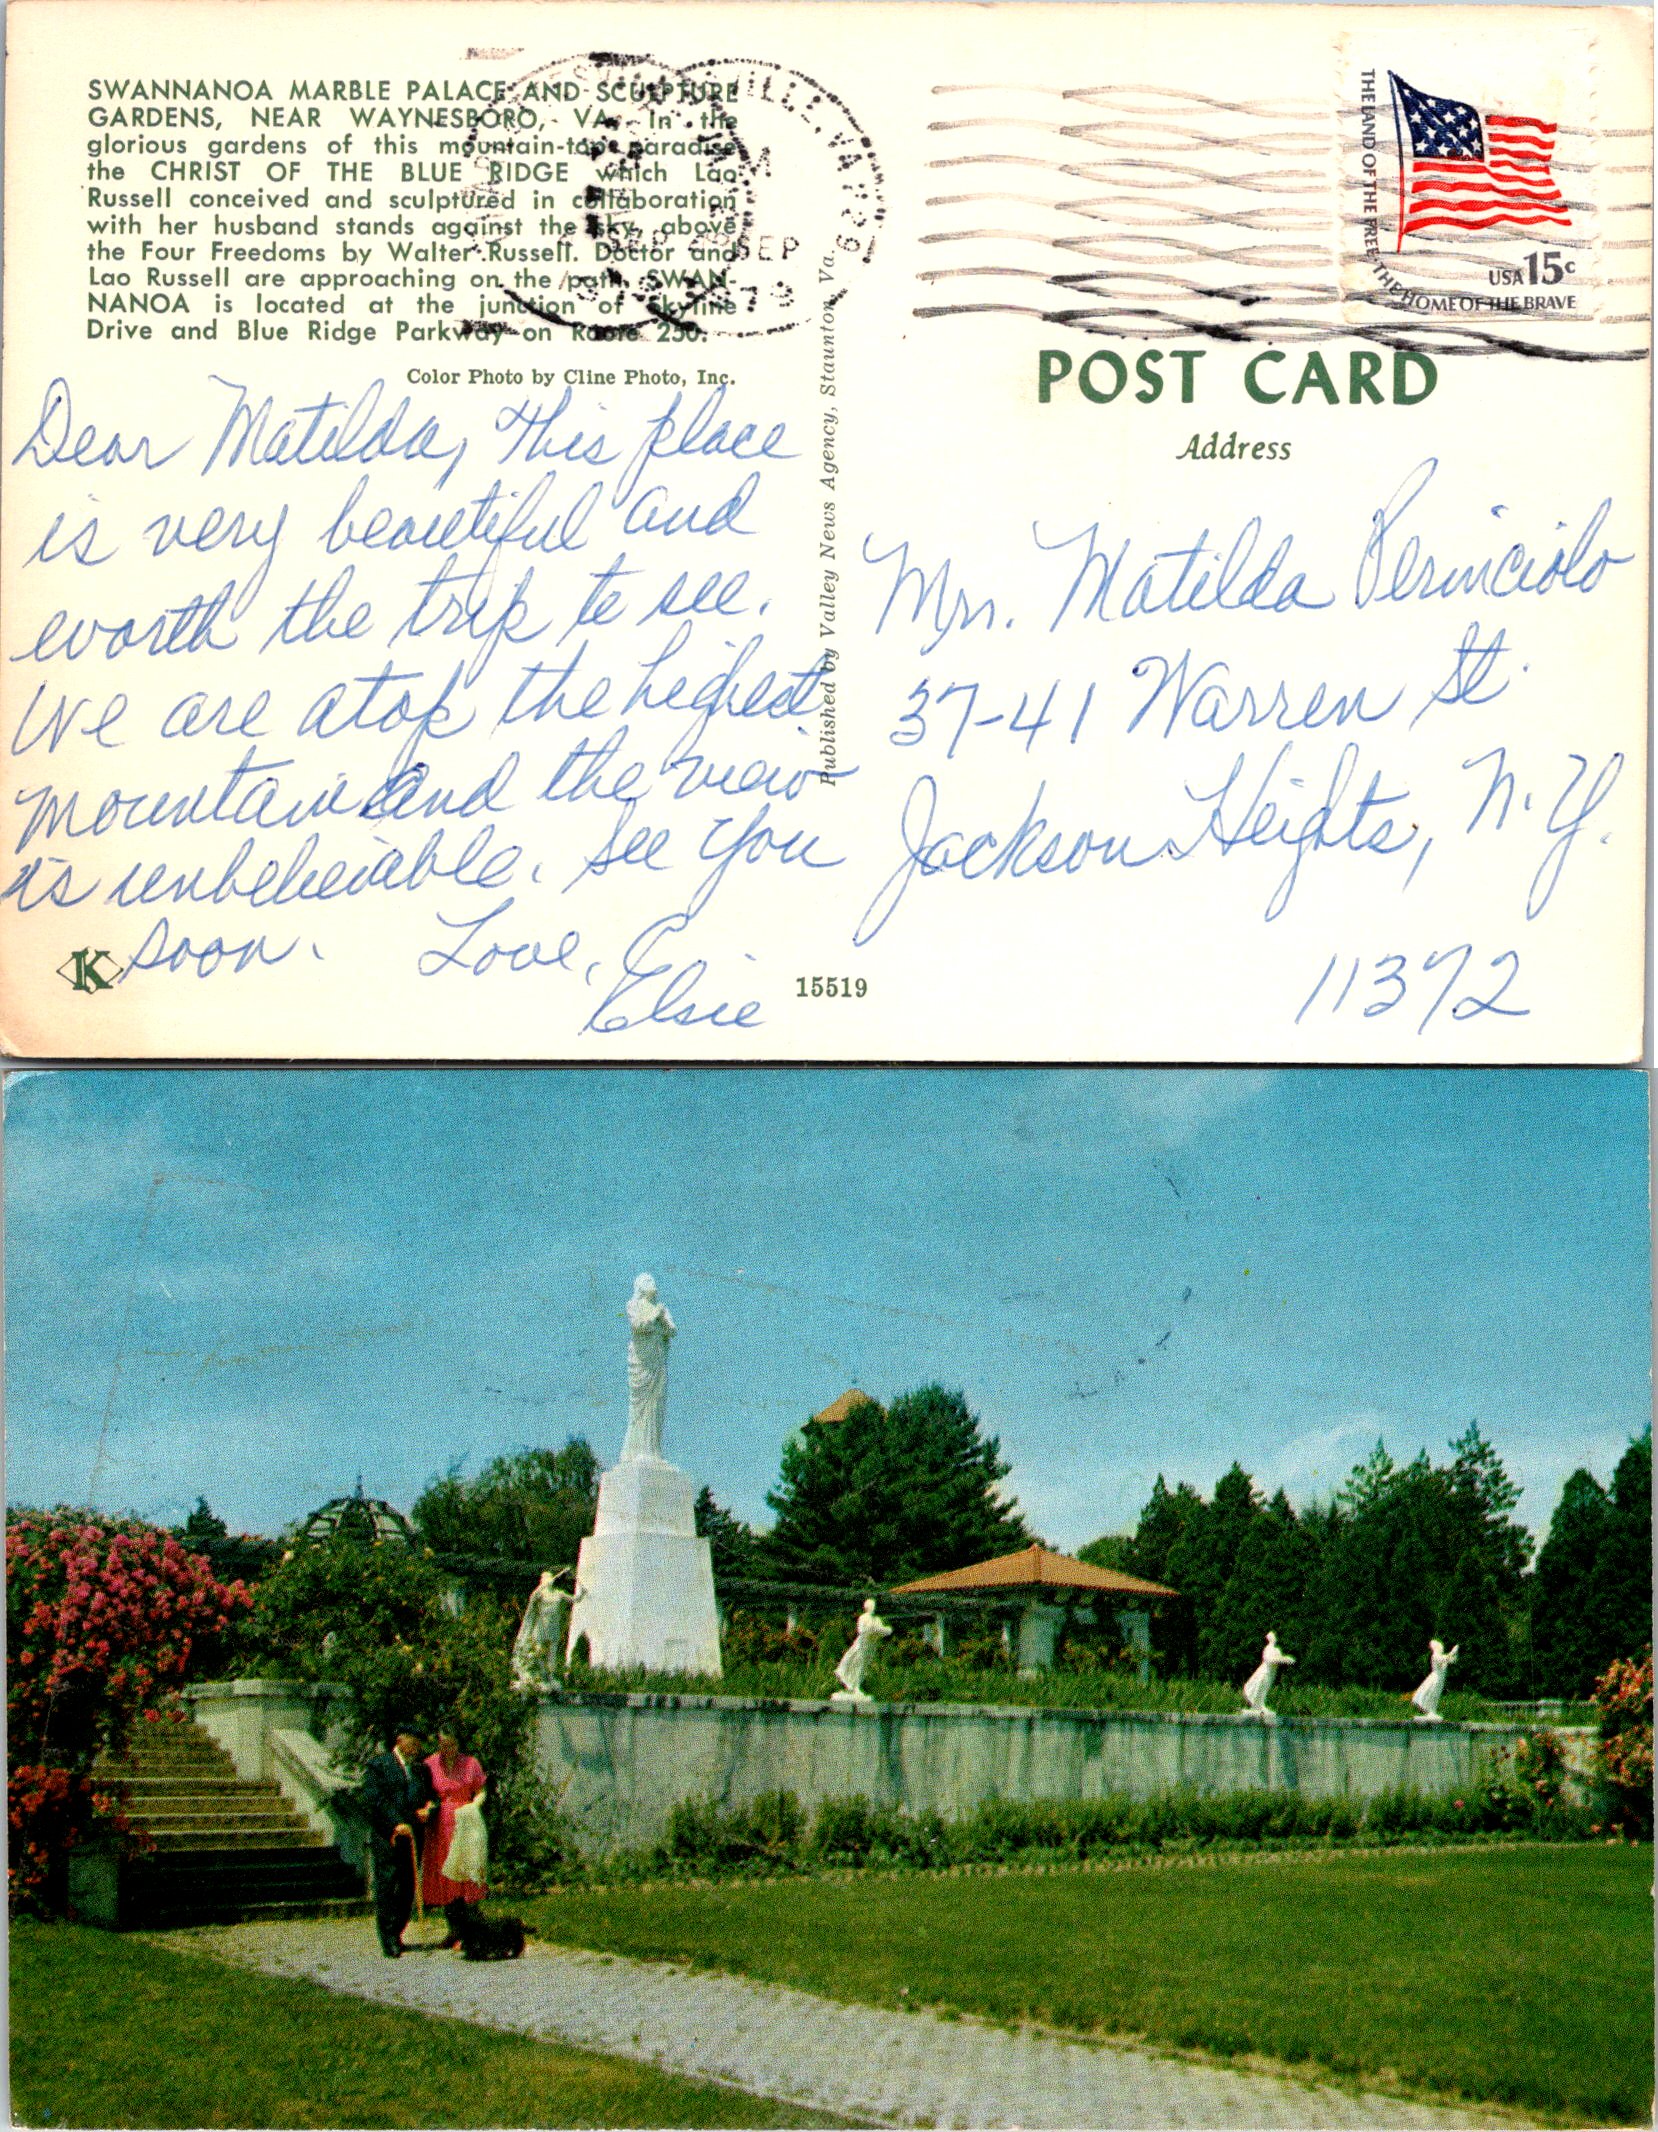 SWANNANOA MARBLE PALACE AND SCULPTURE
GARDENS, NEAR WAYNESBORO, VA. In the
glorious gardens of this mountain-top paradise
the CHRIST OF THE BLUE RIDGE which Lao
Russell conceived and sculptured in collaboration
with her husband stands against the sky, above
the Four Freedoms by Walter Russell. Doctor and
Lao Russell are approaching on the path. SWAN-
NANOA is located at the junction of Skyline
Drive and Blue Ridge Parkway on Route 250.
Color Photo by Cline Photo, Inc.
Dear Matilda, this place
is very beautiful and
worth the trip to see.
We are atop the highest
mountain and the view
is unbelievable. See you
soon. Love,
Elsie
K
15519
Published by Valley News Agency, Staunton, Va.
VILLE, VA 229
SEP
1979
THE LAND OF THE FREE THE HOME OF THE BRAVE
USA 15c
POST CARD
Address
Mrs. Matilda
37-41 Warren St.
Jackson Heights, N.Y.
11372